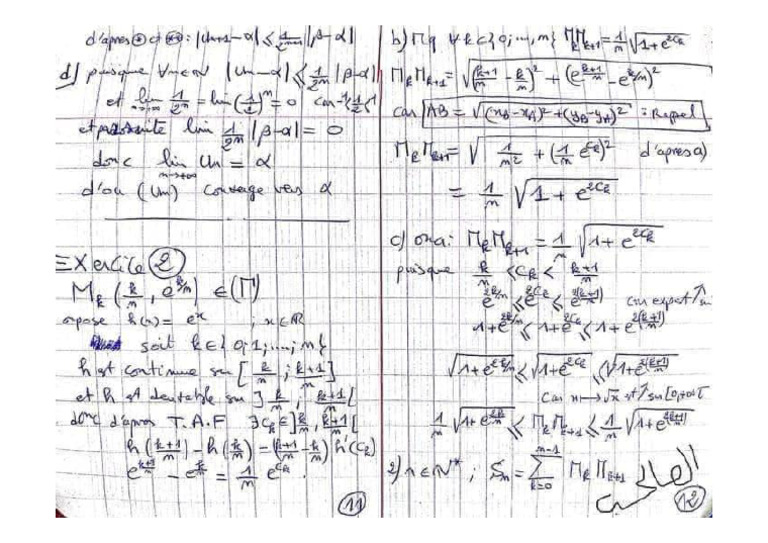 d'après ⊛ et ⊛⊛: |Un+1-α| ≤ 1/2^(n+1) |β-α|
d) puisque ∀n∈ℕ |Un-α| ≤ 1/2^n |β-α|
et lim n→+∞ 1/2^n = lim (1/2)^n = 0 car -1<1/2<1
et par suite lim 1/2^n |β-α| = 0
donc lim n→+∞ Un = α
d'où (Un) converge vers α
Exercice 2
M_k (k/n, e^(k/n)) ∈ (Γ)
on pose h(x) = e^x ; x∈ℝ
soit k∈{0;1;...;n}
h est continue sur [k/n ; (k+1)/n]
et h est dérivable sur ]k/n ; (k+1)/n[
donc d'après T.A.F ∃ c_k ∈ ]k/n, (k+1)/n[
h((k+1)/n) - h(k/n) = ((k+1)/n - k/n) h'(c_k)
e^((k+1)/n) - e^(k/n) = 1/n e^(c_k).
11
b) Mq ∀k∈{0;...,n} M_kM_k+1 = 1/n √(1+e^(2c_k))
M_kM_k+1 = √(((k+1)/n - k/n)² + (e^((k+1)/n) - e^(k/n))²)
car AB = √((x_B-x_A)² + (y_B-y_A)²) : Rappel
M_kM_k+1 = √(1/n² + (1/n e^(c_k))²) d'après a)
= 1/n √(1+e^(2c_k))
c) on a: M_kM_k+1 = 1/n √(1+e^(2c_k))
puisque k/n < c_k < (k+1)/n
e^(2k/n) ≤ e^(2c_k) ≤ e^(2(k+1)/n) car exp est ↗
1+e^(2k/n) ≤ 1+e^(2c_k) ≤ 1+e^(2(k+1)/n)
√(1+e^(2k/n)) ≤ √(1+e^(2c_k)) ≤ √(1+e^(2(k+1)/n))
car x→√x est ↗ sur [0,+∞[
1/n √(1+e^(2k/n)) ≤ M_kM_k+1 ≤ 1/n √(1+e^(2(k+1)/n))
2) n∈ℕ* ; S_n = Σ_(k=0)^(n-1) M_kM_k+1
12